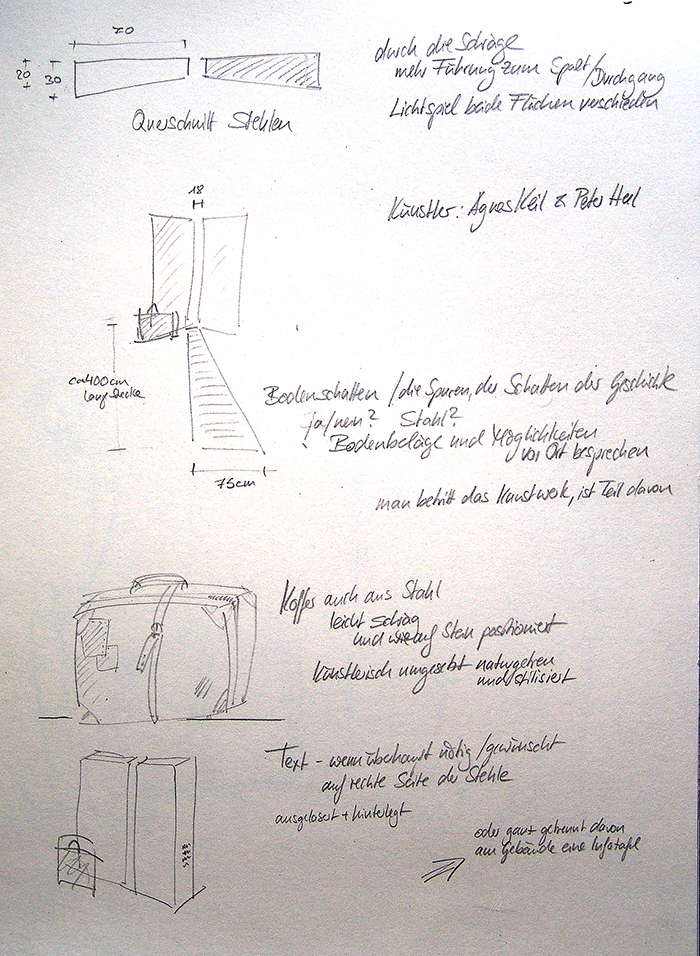 70
20
30
durch die Schräge
mehr Führung zum Spalt/Durchgang
Lichtspiel beide Flächen verschieden
Querschnitt Stehlen
18
Künstler: Agnes Keil & Peter
ca 400cm
lang Stecke
Bodenschatten / die Spuren, der Schatten der Geschichte
ja/nein? Stahl?
Bodenbeläge und Möglichkeiten
vor Ort besprechen
75cm
man betritt das Kunstwerk, ist Teil davon
Koffer auch aus Stahl
leicht schräg
und auf Stein positioniert
künstlerisch umgesetzt naturgetreu
und stilisiert
Text - wenn überhaupt nötig / gewünscht
auf rechte Seite der Stehle
ausgelasert + hinterlegt
oder ganz getrennt davon
am Gebäude eine Infotafel